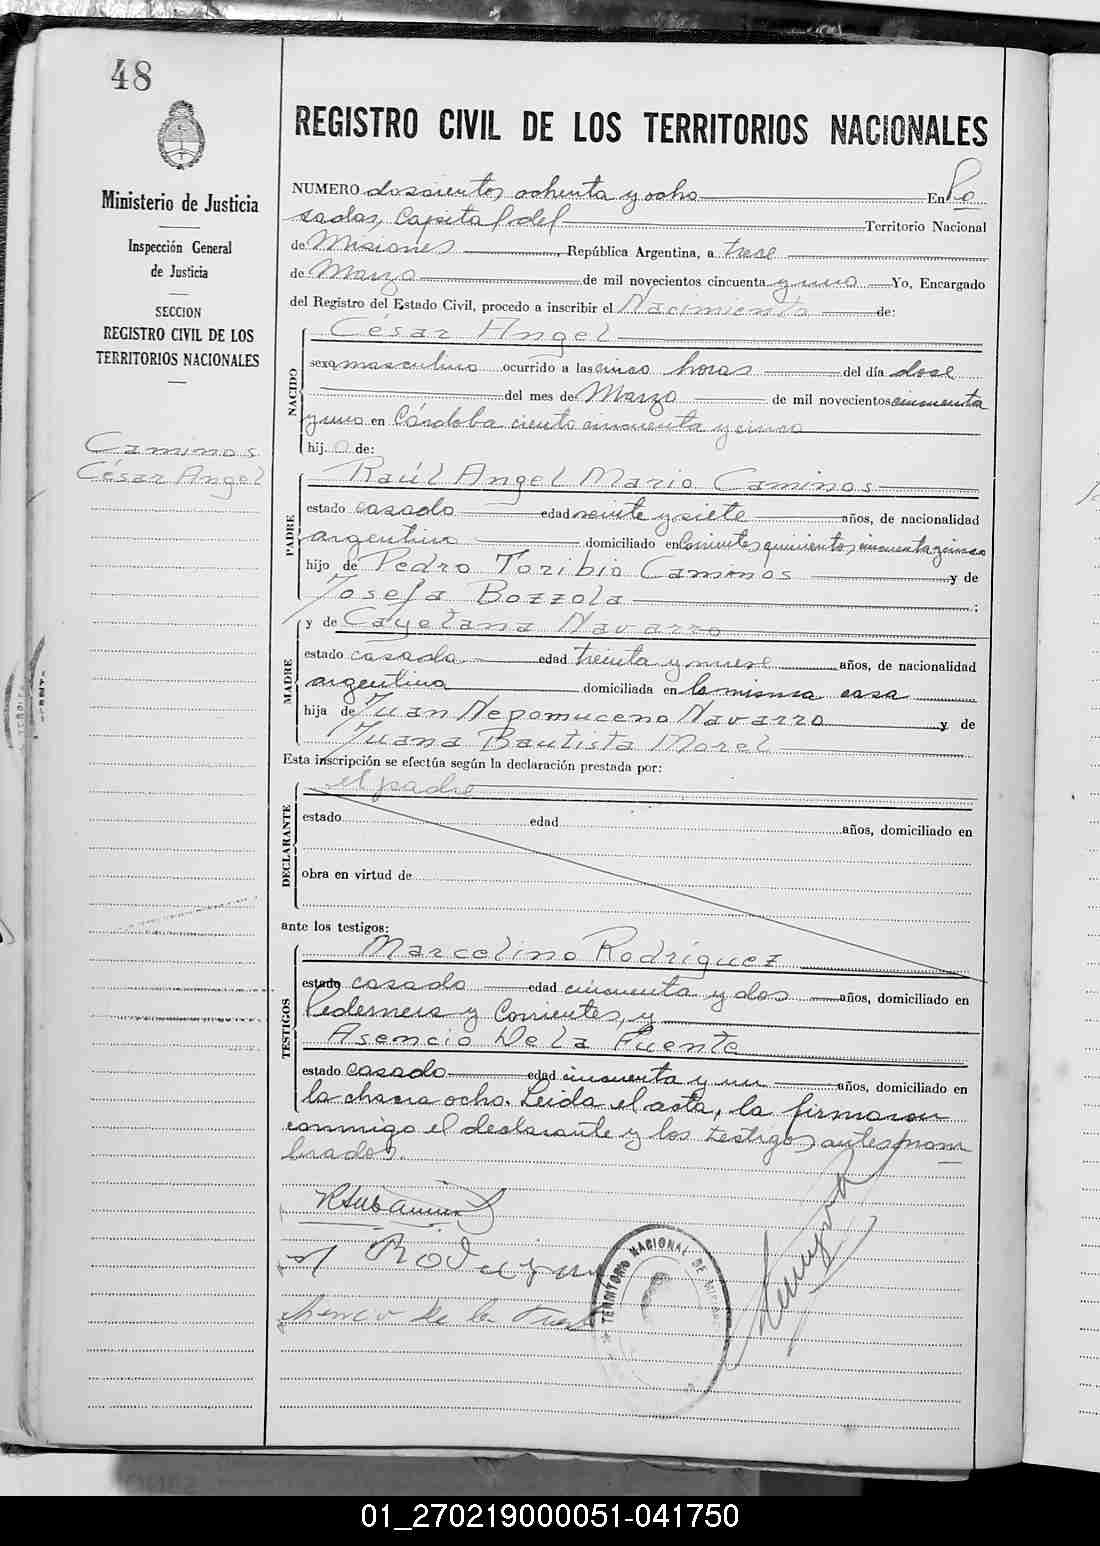 48
Ministerio de Justicia
Inspección General
de Justicia
SECCION
REGISTRO CIVIL DE LOS
TERRITORIOS NACIONALES
Caminos
César Angel
REGISTRO CIVIL DE LOS TERRITORIOS NACIONALES
NUMERO doscientos ochenta y ocho En Po
sadas, Capital del Territorio Nacional
de Misiones, República Argentina, a trece
de Marzo de mil novecientos cincuenta y uno Yo, Encargado
del Registro del Estado Civil, procedo a inscribir el Nacimiento de:
NACIDO
César Angel
sexo masculino ocurrido a las cinco horas del día doce
del mes de Marzo de mil novecientos cincuenta
y uno en Córdoba ciento cincuenta y cinco
hij o de:
PADRE
Raúl Angel Mario Caminos
estado casado edad veinte y siete años, de nacionalidad
argentino domiciliado en Corrientes quinientos cincuenta y cinco
hijo de Pedro Toribio Caminos y de
Josefa Bozzola ;
MADRE
y de Cayetana Navarro
estado casada edad treinta y nueve años, de nacionalidad
argentina domiciliada en la misma casa
hija de Juan Nepomuceno Navarro y de
Juana Bautista Morel
Esta inscripción se efectúa según la declaración prestada por:
DECLARANTE
el padre
estado edad años, domiciliado en
obra en virtud de
ante los testigos:
TESTIGOS
Marcelino Rodríguez
estado casado edad cincuenta y dos años, domiciliado en
Pedernera y Corrientes, y
Asencio De la Fuente
estado casado edad cincuenta y un años, domiciliado en
la chacra ocho. Leida el acta, la firmaron
conmigo el declarante y los testigos antes nom
brados.
de la Fuente
TERRITORIO NACIONAL DE
01_270219000051-041750